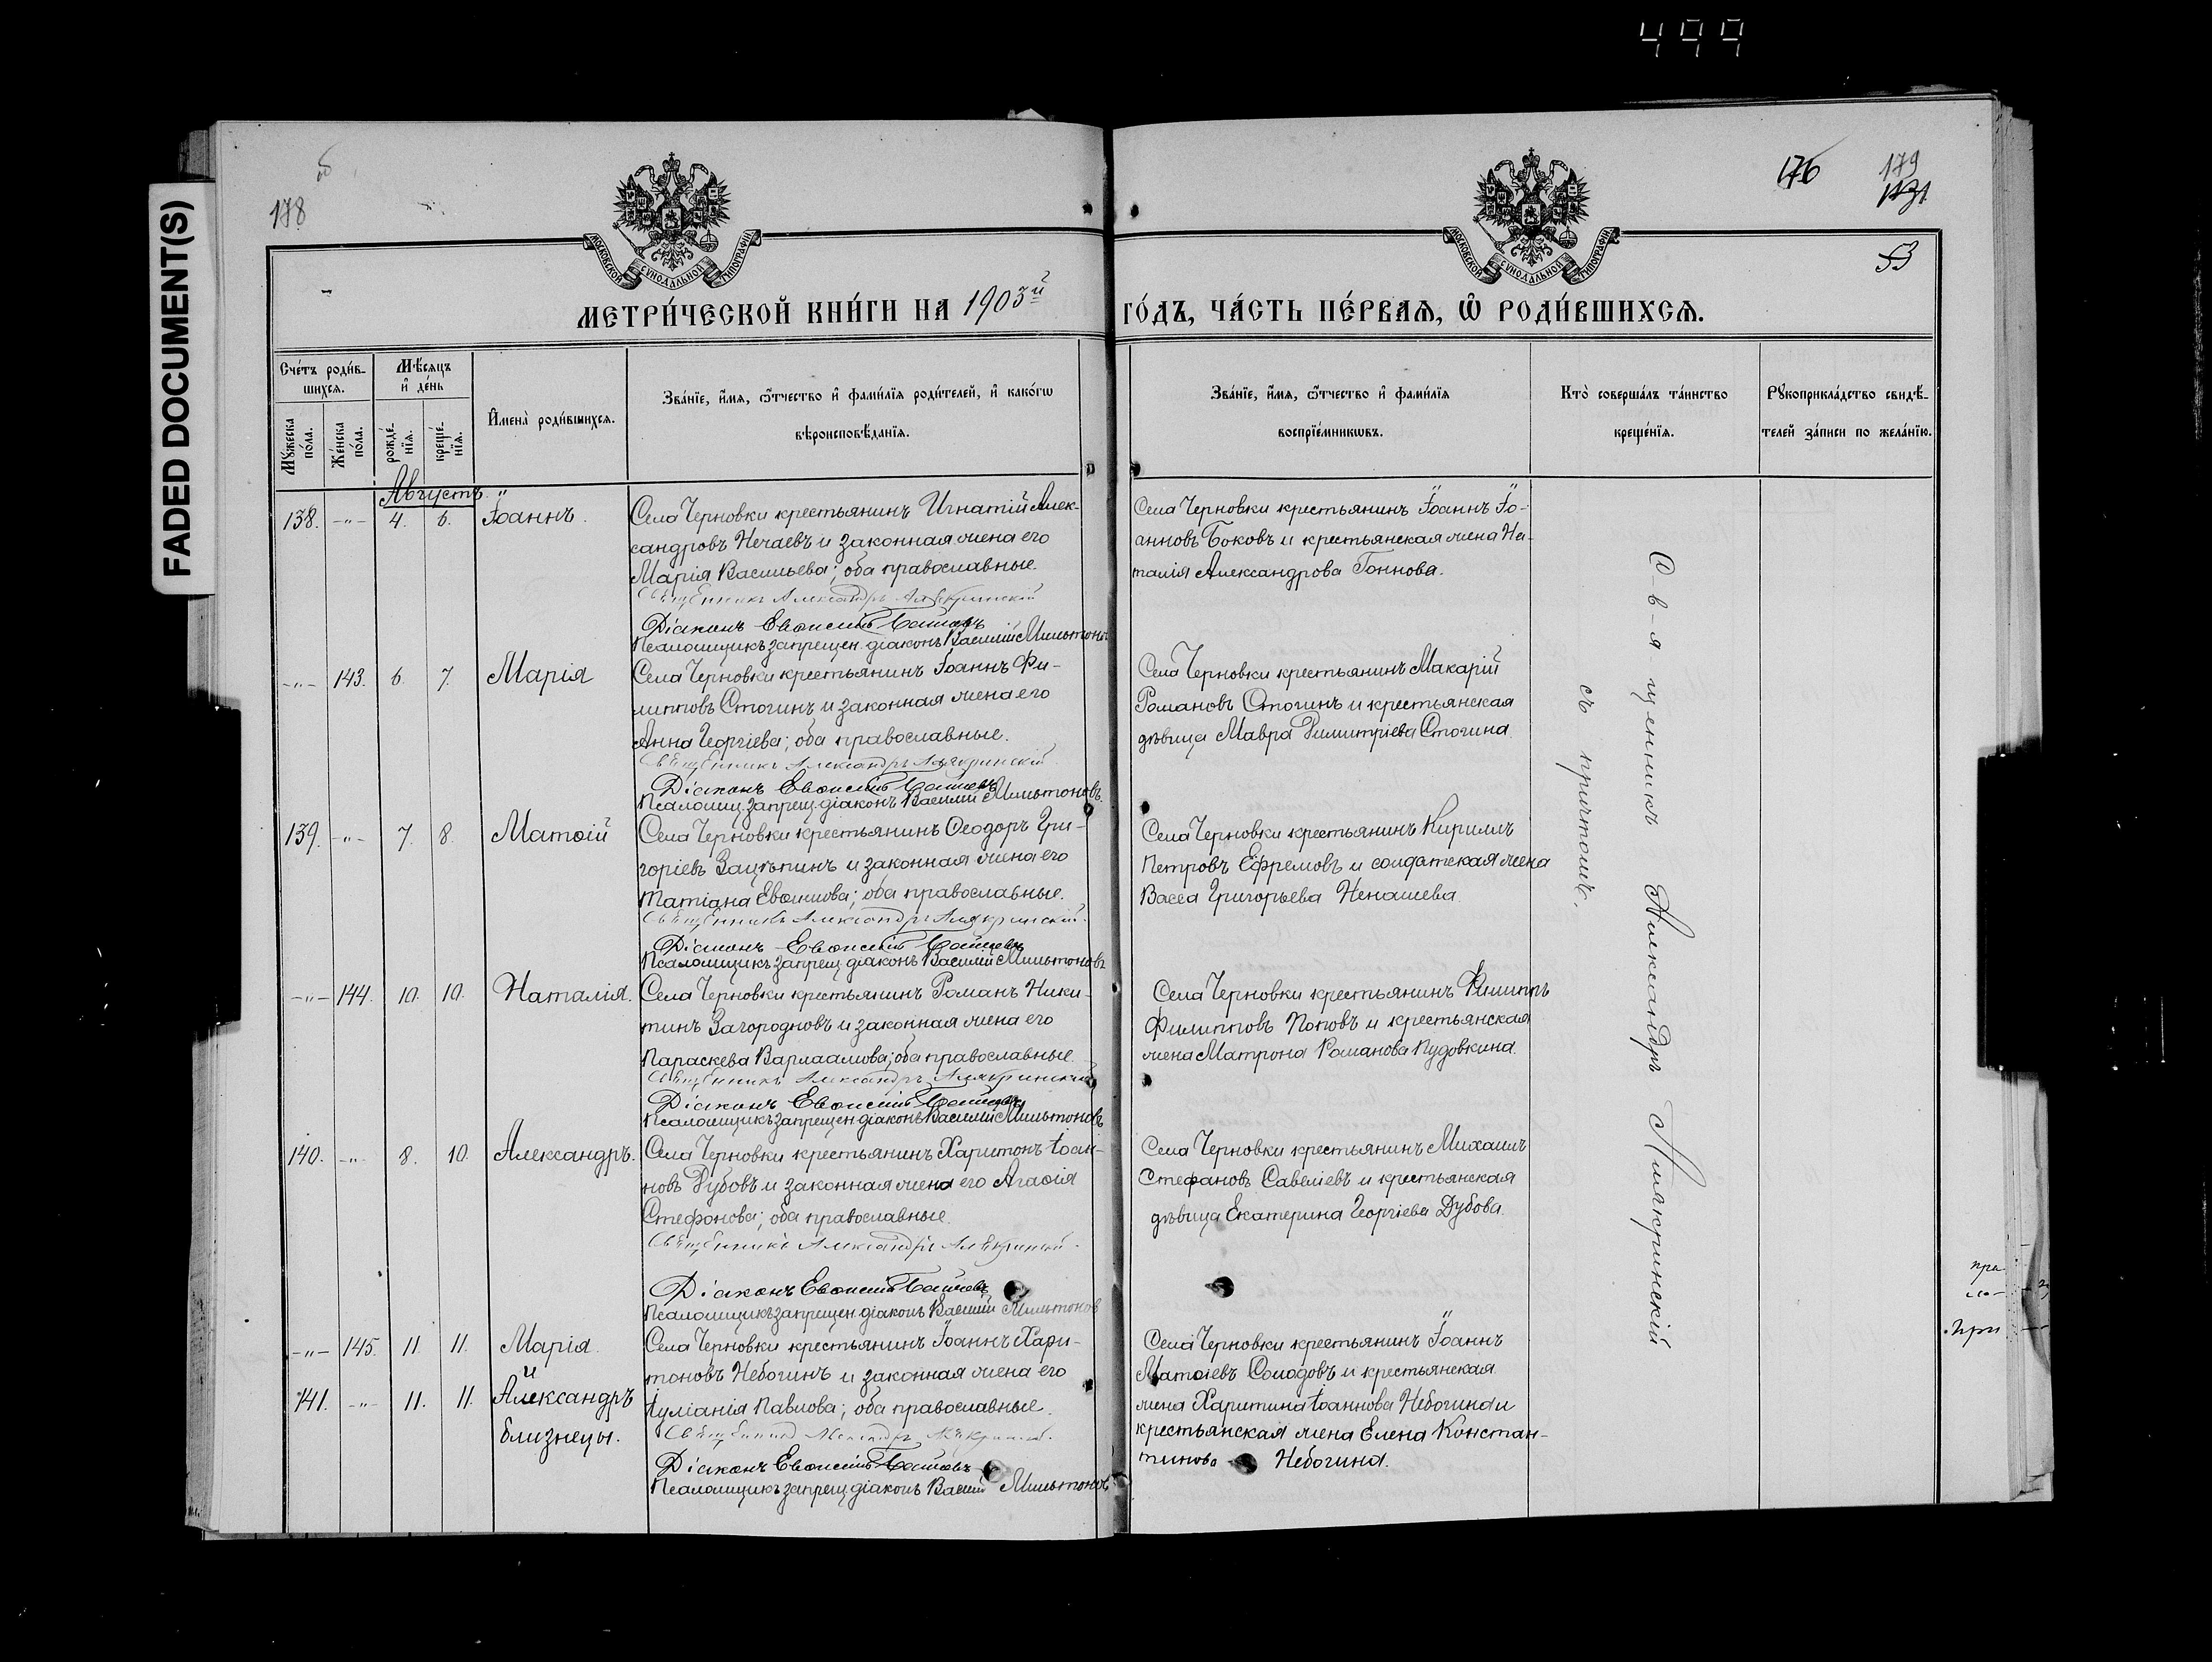 499
FADED DOCUMENT(S)
178
176
179
53
МОСКОВСКОЙ СѴНОДАЛЬНОЙ ТИПОГРАФІИ
МОСКОВСКОЙ СѴНОДАЛЬНОЙ ТИПОГРАФІИ
МЕТРИ́ЧЕСКОЙ КНИ́ГИ НА 1903й
ГО́ДЪ, ЧА́СТЬ ПЕ́РВАѦ, Ѽ РОДИ́ВШИХСѦ.
Сче́тъ роди́в-
шихсѧ.
Мꙋ́жеска
по́ла.
Же́нска
по́ла.
Мѣ́сѧцъ
и҆ де́нь
рожде́-
нїѧ.
креще́-
нїѧ.
И҆мена̀ роди́вшихсѧ.
Зва́нїе, и҆́мѧ, ѻ҆́тчество и҆ фами́лїѧ роди́телей, и҆ како́гѡ
вѣроисповѣ́данїѧ.
Зва́нїе, и҆́мѧ, ѻ҆́тчество и҆ фами́лїѧ
воспрїе́мникѡвъ.
Кто̀ соверша́лъ та́инство
креще́нїѧ.
Рꙋкоприкла́дство свидѣ́-
телей за́писи по жела́нїю.
Августъ.
138. -"- 4. 6. Іоаннъ.
Села Черновки крестьянинъ Игнатій Алек-
сандровъ Нечаевъ и законная жена его
Марія Васильева; оба православные.
Священникъ Александръ Алякринскій
Діаконъ Евѳимій
Псаломщикъ запрещен. діаконъ Василій Мильтоновъ
Села Черновки крестьянинъ Іоаннъ Іо-
анновъ Боковъ и крестьянская жена На-
талія Александрова Гоннова.
-"- 143. 6. 7. Марія
Села Черновки крестьянинъ Іоаннъ Фи-
липповъ Стогинъ и законная жена его
Анна Георгіева; оба православные.
Священникъ Александръ Алякринскій
Діаконъ Евѳимій
Псаломщ. запрещ. діаконъ Василій Мильтоновъ.
Села Черновки крестьянинъ Макарій
Романовъ Стогинъ и крестьянская
дѣвица Мавра Димитріева Стогина.
139. -"- 7. 8. Матѳій
Села Черновки крестьянинъ Ѳеодоръ Гри-
горіевъ Зацѣпинъ и законная жена его
Татіана Евѳимова; оба православные.
Священникъ Александръ Алякринскій.
Діаконъ Евѳимій
Псаломщикъ запрещ. діаконъ Василій Мильтоновъ
Села Черновки крестьянинъ Кириллъ
Петровъ Ефремовъ и солдатская жена
Васса Григорьева Ненашева.
-"- 144. 10. 10. Наталія.
Села Черновки крестьянинъ Романъ Ники-
тинъ Загородновъ и законная жена его
Параскева Варлаамова; оба православные.
Священникъ Александръ Алякринскій
Діаконъ Евѳимій
Псаломщикъ запрещен. діаконъ Василій Мильтоновъ
Села Черновки крестьянинъ Филиппъ
Филипповъ Поповъ и крестьянская
жена Матрона Романова Пудовкина.
140. -"- 8. 10. Александръ.
Села Черновки крестьянинъ Харитонъ Іоан-
новъ Дубовъ и законная жена его Агаѳія
Стефанова; оба православные.
Священникъ Александръ Алякринскій.
Діаконъ Евѳимій
Псаломщикъ запрещен. діаконъ Василій Мильтонов
Села Черновки крестьянинъ Михаилъ
Стефановъ Савеліевъ и крестьянская
дѣвица Екатерина Георгіева Дубова.
-"- 145. 11. 11. Марія.
и
141. -"- 11. 11. Александръ
близнецы.
Села Черновки крестьянинъ Іоаннъ Хари-
тоновъ Небогинъ и законная жена его
Іуліанія Павлова; оба православные.
Священникъ Александръ Алякринскій.
Діаконъ Евѳимій
Псаломщикъ запрещ. діаконъ Василій Мильтоновъ
Села Черновки крестьянинъ Іоаннъ
Матѳіевъ Солодовъ и крестьянская
жена Харитина Іоаннова Небогина и
крестьянская жена Елена Констан-
тинова Небогина.
С-в-я щенникъ Александръ Алякринскій
съ причтомъ.
при